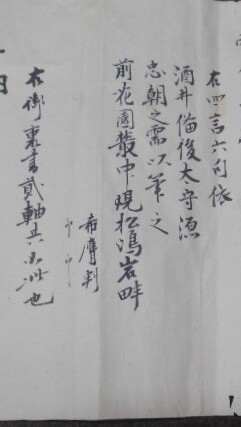 右四言六句依
酒井備後太守源
忠朝之需以筆之
前花園叢中現松嶋岩畔
希膺判
印 印
右御裏書貳軸共如此也